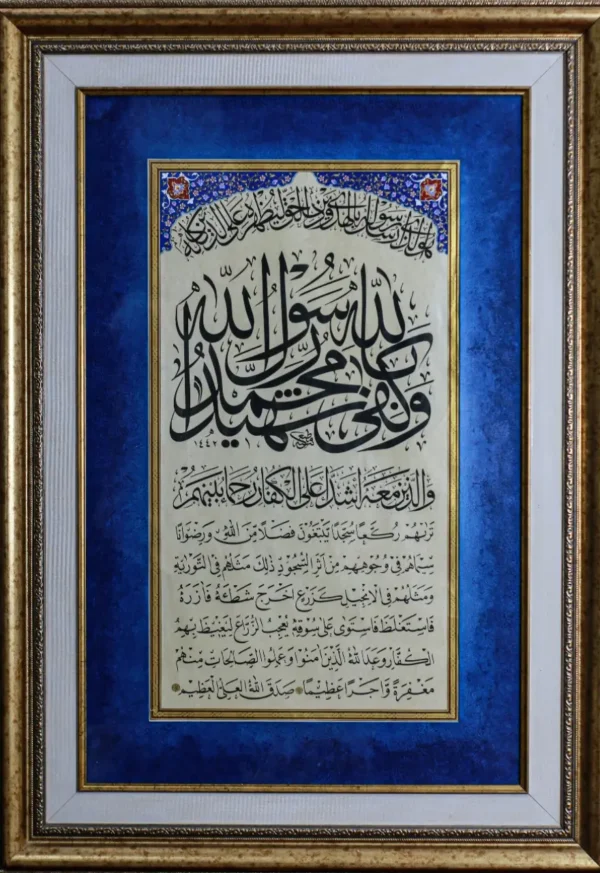 هُوَ الَّذِي اَرْسَلَ رَسُولَهُ بِالْهُدٰى وَدِينِ الْحَقِّ لِيُظْهِرَهُ عَلَى الدِّينِ كُلِّهِ
وَكَفٰى بِاللّٰهِ شَهِيدًا مُحَمَّدٌ رَسُولُ اللّٰهِ
١٤٤٢
وَالَّذِينَ مَعَهُ اَشِدَّاءُ عَلَى الْكُفَّارِ رُحَمَاءُ بَيْنَهُمْ
تَرٰيهُمْ رُكَّعًا سُجَّدًا يَبْتَغُونَ فَضْلًا مِنَ اللّٰهِ وَرِضْوَانًا
سِيمَاهُمْ فِي وُجُوهِهِمْ مِنْ اَثَرِ السُّجُودِ ذٰلِكَ مَثَلُهُمْ فِي التَّوْرٰيةِ
وَمَثَلُهُمْ فِي الْاِنْجِيلِ كَزَرْعٍ اَخْرَجَ شَطْئَهُ فَاٰزَرَهُ
فَاسْتَغْلَظَ فَاسْتَوٰى عَلٰى سُوقِهِ يُعْجِبُ الزُّرَّاعَ لِيَغِيظَ بِهِمُ
الْكُفَّارَ وَعَدَ اللّٰهُ الَّذِينَ اٰمَنُوا وَعَمِلُوا الصَّالِحَاتِ مِنْهُمْ
مَغْفِرَةً وَاَجْرًا عَظِيمًا صَدَقَ اللّٰهُ الْعَلِيُّ الْعَظِيمُ